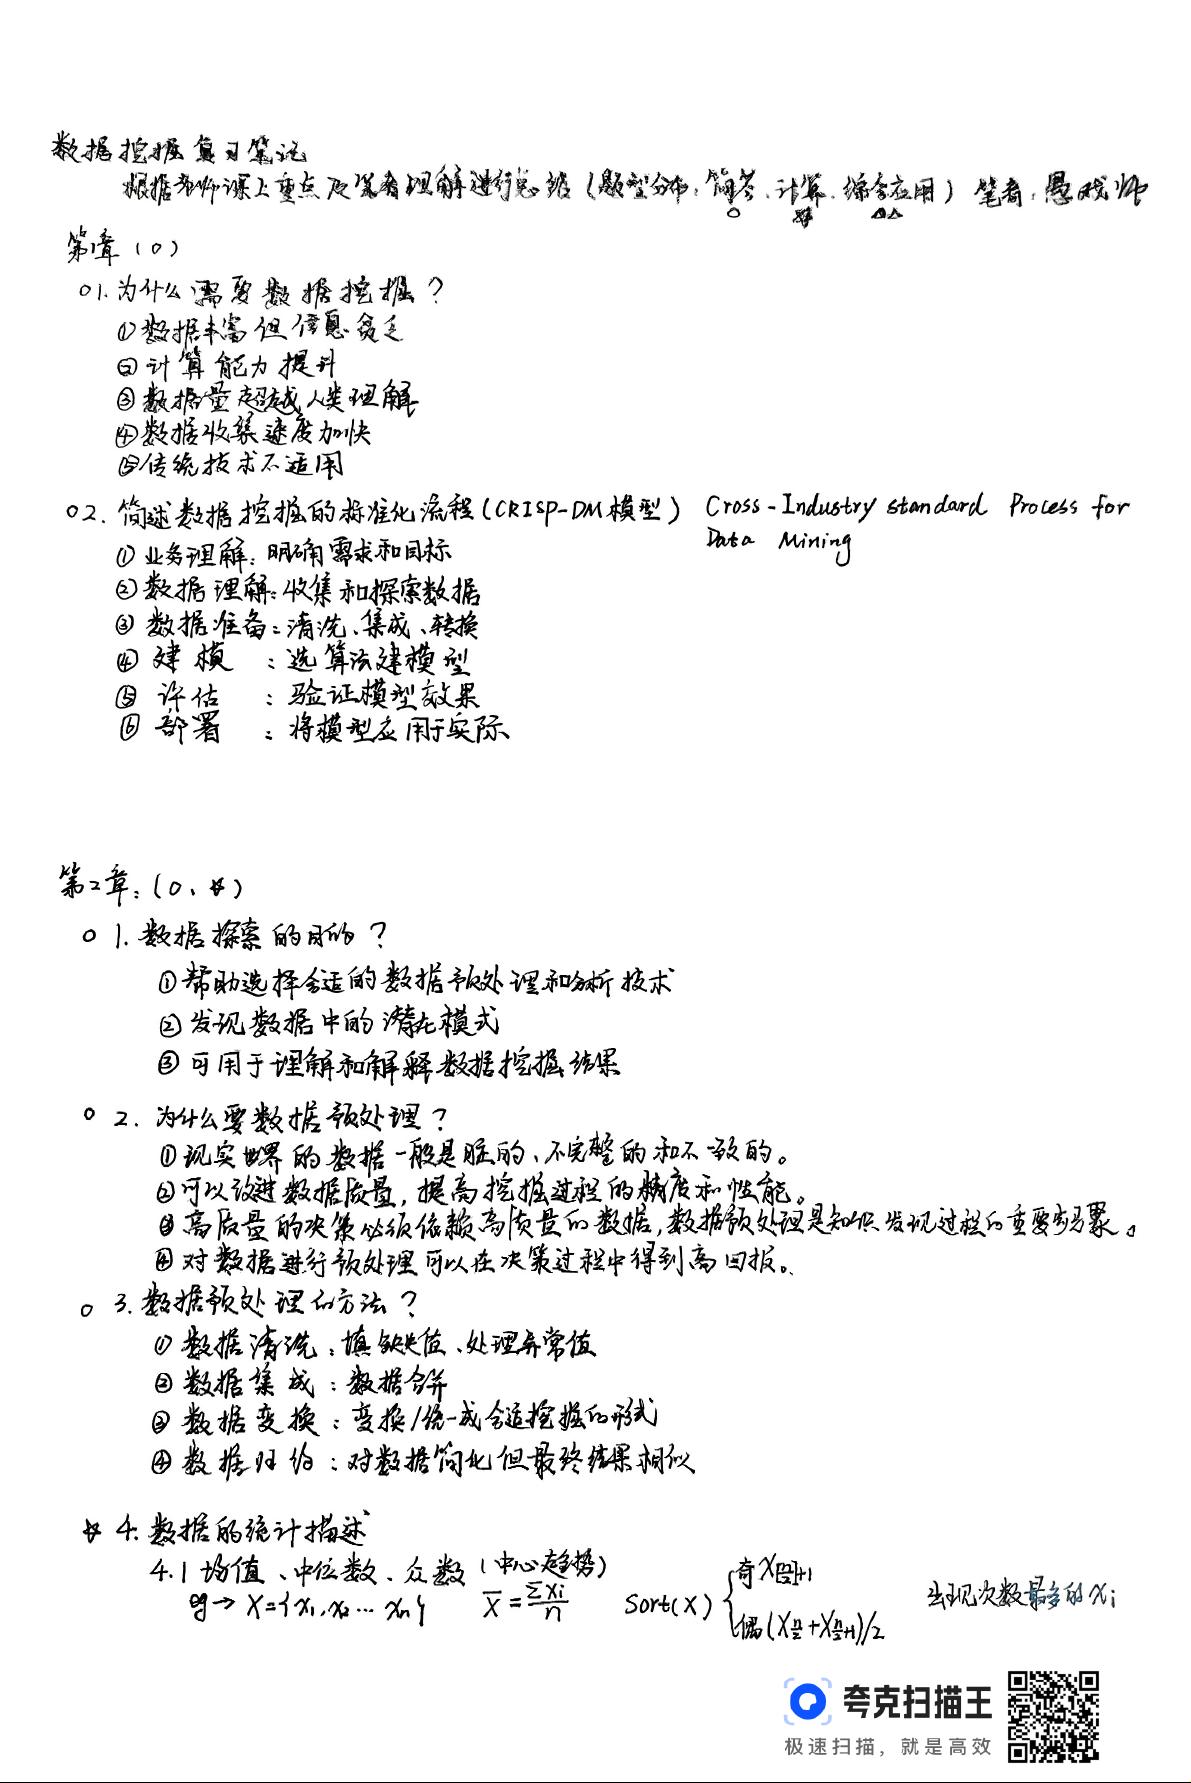 数据挖掘复习笔记
根据老师课上重点及笔者理解进行总结(题型分布:简答、计算、综合应用) 笔者:愚戏师
○ ☆ △△
第1章(○)
○1.为什么需要数据挖掘?
①数据丰富但信息贫乏
②计算能力提升
③数据量超越人类理解
④数据收集速度加快
⑤传统技术不适用
○2.简述数据挖掘的标准化流程(CRISP-DM模型) Cross-Industry standard Process for
Data Mining
①业务理解:明确需求和目标
②数据理解:收集和探索数据
③数据准备:清洗、集成、转换
④建模:选算法建模型
⑤评估:验证模型效果
⑥部署:将模型应用于实际
第2章:(○、☆)
○1.数据探索的目的?
①帮助选择合适的数据预处理和分析技术
②发现数据中的潜在模式
③可用于理解和解释数据挖掘结果
○2.为什么要数据预处理?
①现实世界的数据一般是脏的、不完整的和不一致的。
②可以改进数据质量,提高挖掘过程的精度和性能。
③高质量的决策必须依赖高质量的数据,数据预处理是知识发现过程的重要步骤。
④对数据进行预处理可以在决策过程中得到高回报。
○3.数据预处理的方法?
①数据清洗:填缺失值、处理异常值
②数据集成:数据合并
③数据变换:变换/统一成合适挖掘的形式
④数据归约:对数据简化但最终结果相似
☆4.数据的统计描述
4.1 均值、中位数、众数(中心趋势)
eg→ X={x₁,x₂…xₙ} X̄=Σxi/n Sort(X) { 奇X[n/2]+1 出现次数最多的xi
偶(Xn/2+Xn/2+1)/2
夸克扫描王
极速扫描,就是高效